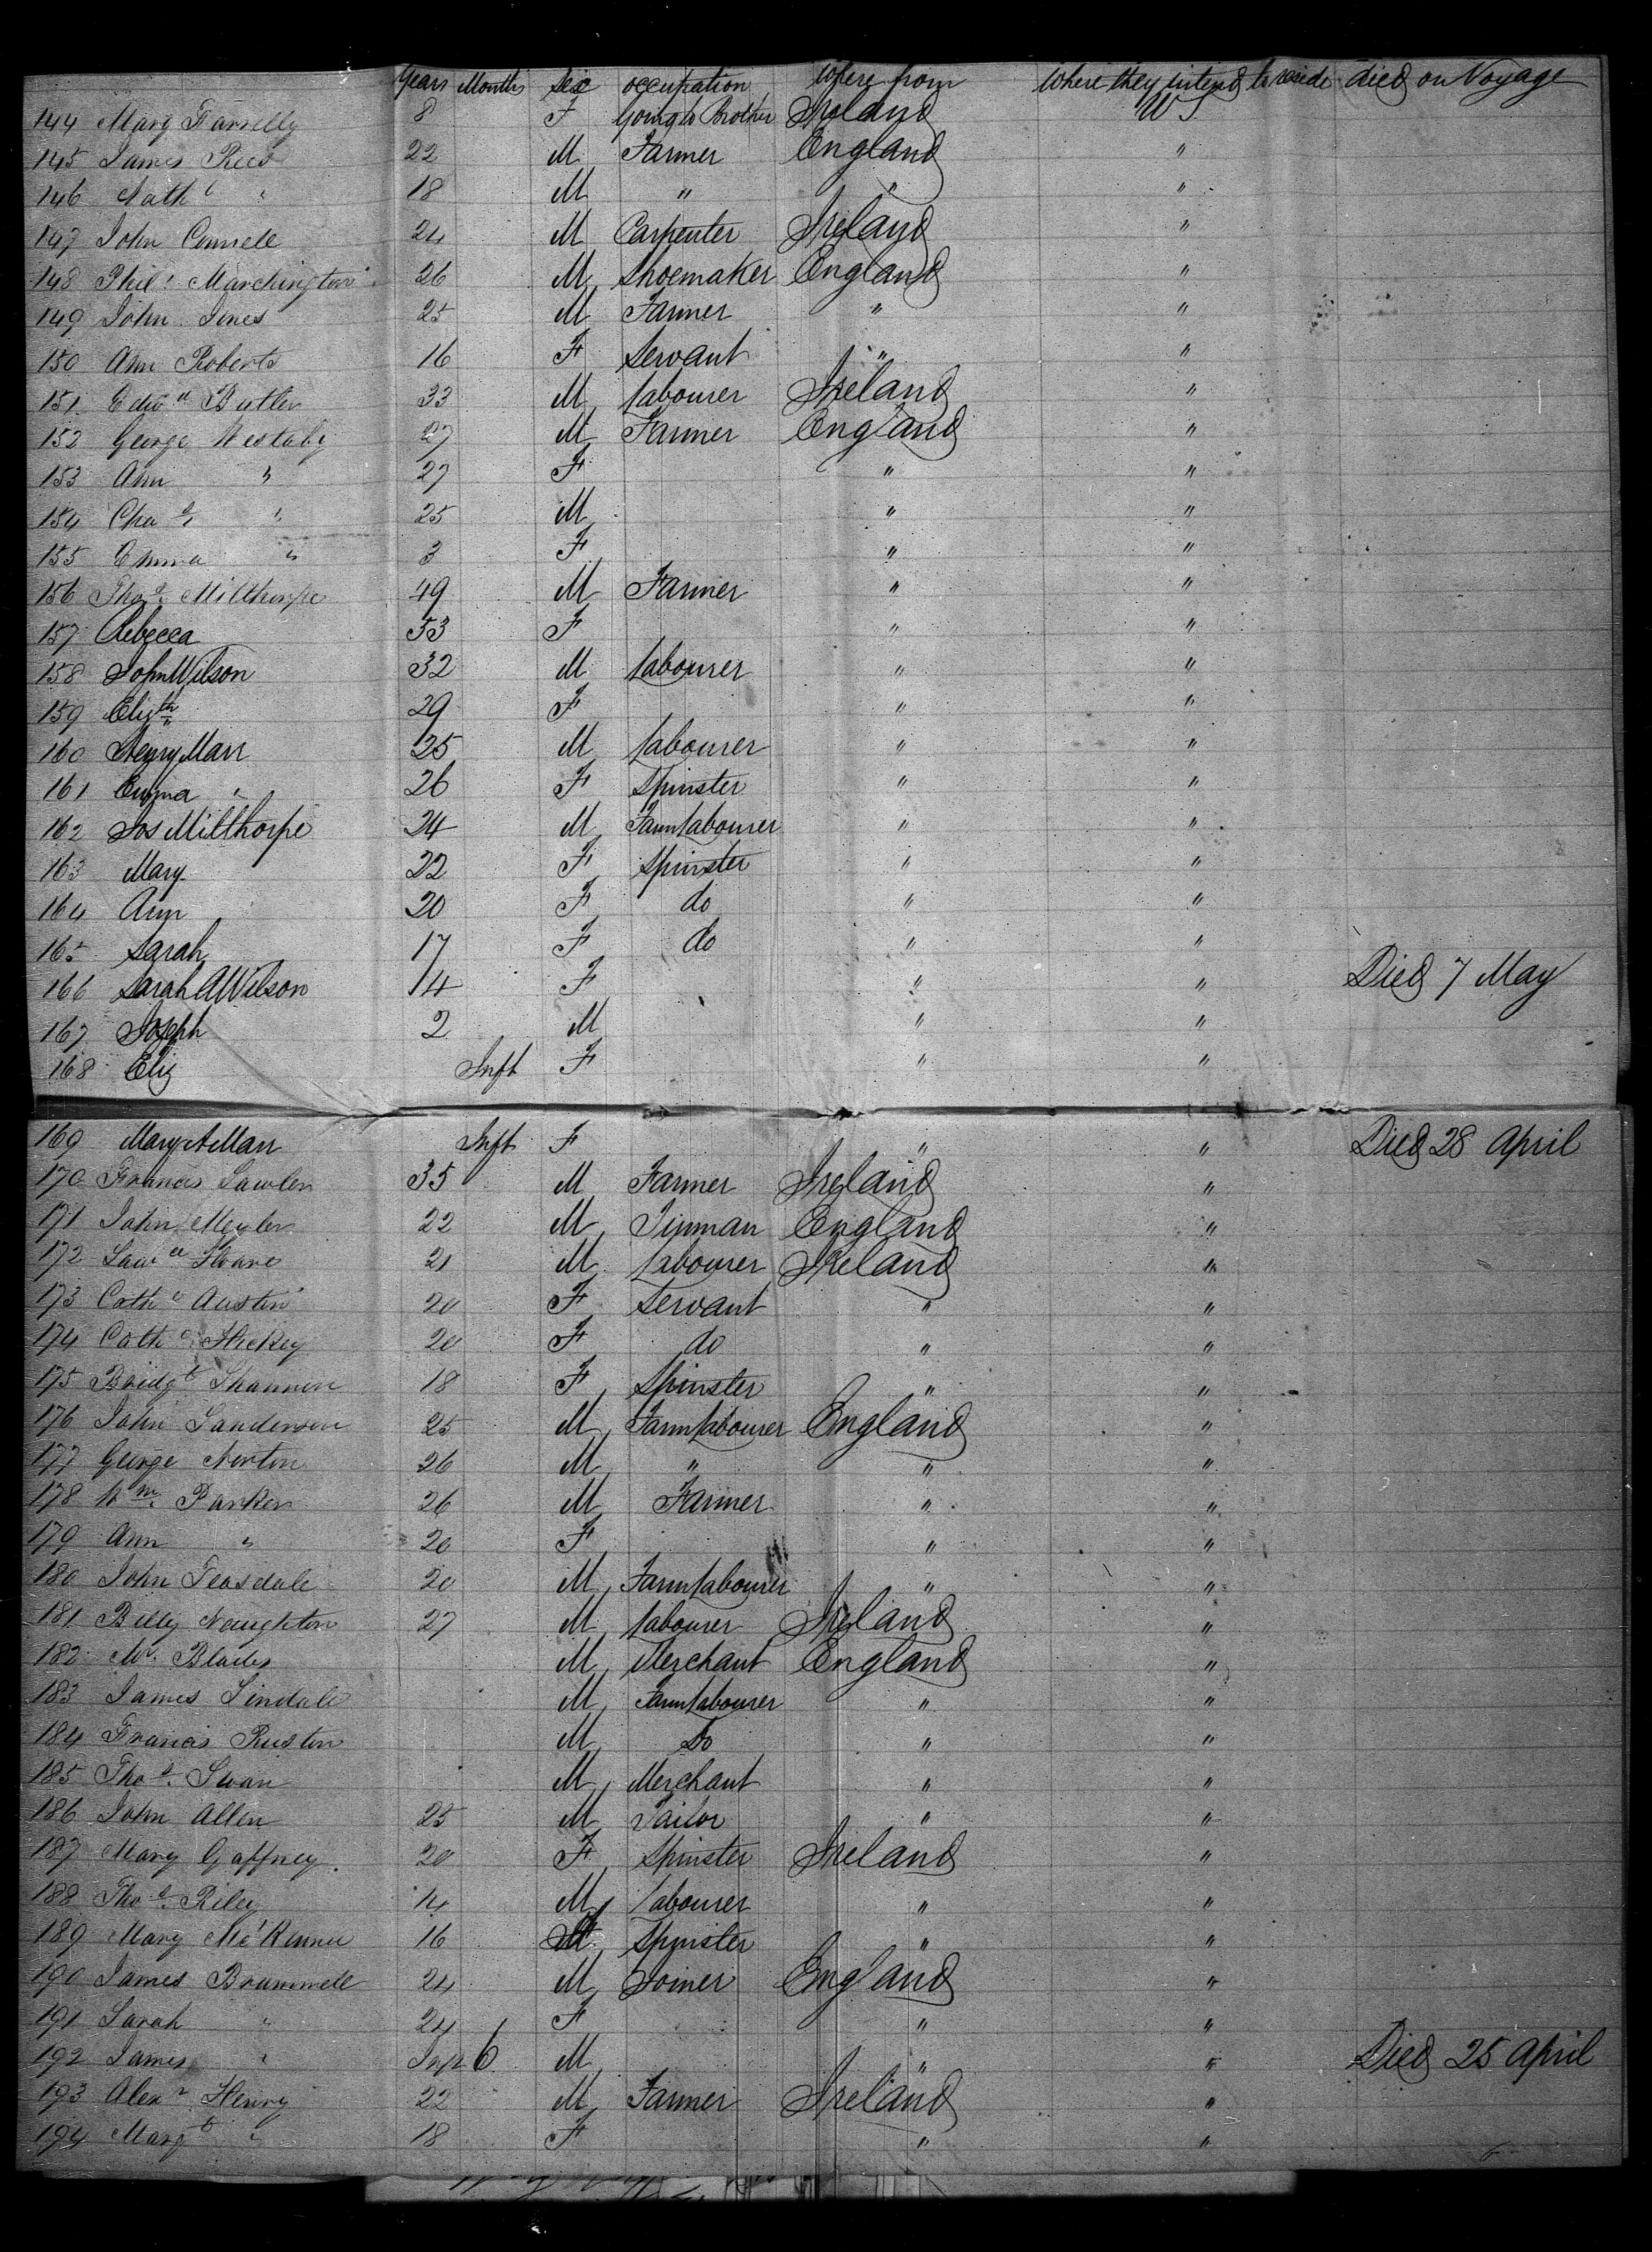 Years Months Sex occupation Where from Where they intend to reside died on Voyage
144 Mary Farrelly 8 F Going to Brother Ireland U S
145 James Rees 22 M Farmer England "
146 Nath l " 18 M " " "
147 John Connell 24 M Carpenter Ireland "
148 Phil: Marchington 26 M Shoemaker England "
149 John Jones 25 M Farmer " "
150 Ann Roberts 16 F Servant " "
151 Edwd Butler 33 M Labourer Ireland "
152 George Westaby 27 M Farmer England "
153 Ann " 27 F " "
154 Chas " 25 M " "
155 Emma " 3 F " "
156 Thos. Milthorpe 49 M Farmer " "
157 Rebecca 53 F " "
158 John Wilson 32 M Labourer " "
159 Elizth " 29 F " "
160 Henry Marr 25 M Labourer " "
161 Emma " 26 F Spinster " "
162 Jos Milthorpe 24 M Farm Labourer " "
163 Mary 22 F Spinster " "
164 Ann 20 F do " "
165 Sarah 17 F do " "
166 Sarah A Wilson 4 F " " Died 7 May
167 Joseph 2 M " "
168 Eliz Inft F " "
169 Mary A Marr Inft F " " Died 28 April
170 Francis Lawler 35 M Farmer Ireland "
171 John Meyler 22 M Tinman England "
172 Lawce Hoare 21 M Labourer Ireland "
173 Cathe Austin 20 F Servant " "
174 Cathe Hickey 20 F do " "
175 Bridgt Shannon 18 F Spinster " "
176 John Sanderson 25 M Farm Labourer England "
177 George Newton 26 M " " "
178 Wm. Parker 26 M Farmer " "
179 Ann " 20 F " "
180 John Teasdale 20 M Farm Labourer " "
181 Billy Naughton 27 M Labourer Ireland "
182 Mr. Blades M Merchant England "
183 James Lindale M Farm Labourer " "
184 Francis Ruston M Do " "
185 Thos. Swan M Merchant " "
186 John Allen 25 M Tailor " "
187 Mary Gaffney. 20 F Spinster Ireland "
188 Thos. Riley 14 M Labourer " "
189 Mary 16 Spinster " "
190 James Brummell 24 M Joiner England "
191 Sarah " 24 F " "
192 James " 6 M " " Died 25 April
193 Alexr. Henry 22 M Farmer Ireland "
194 Margt " 18 F " "